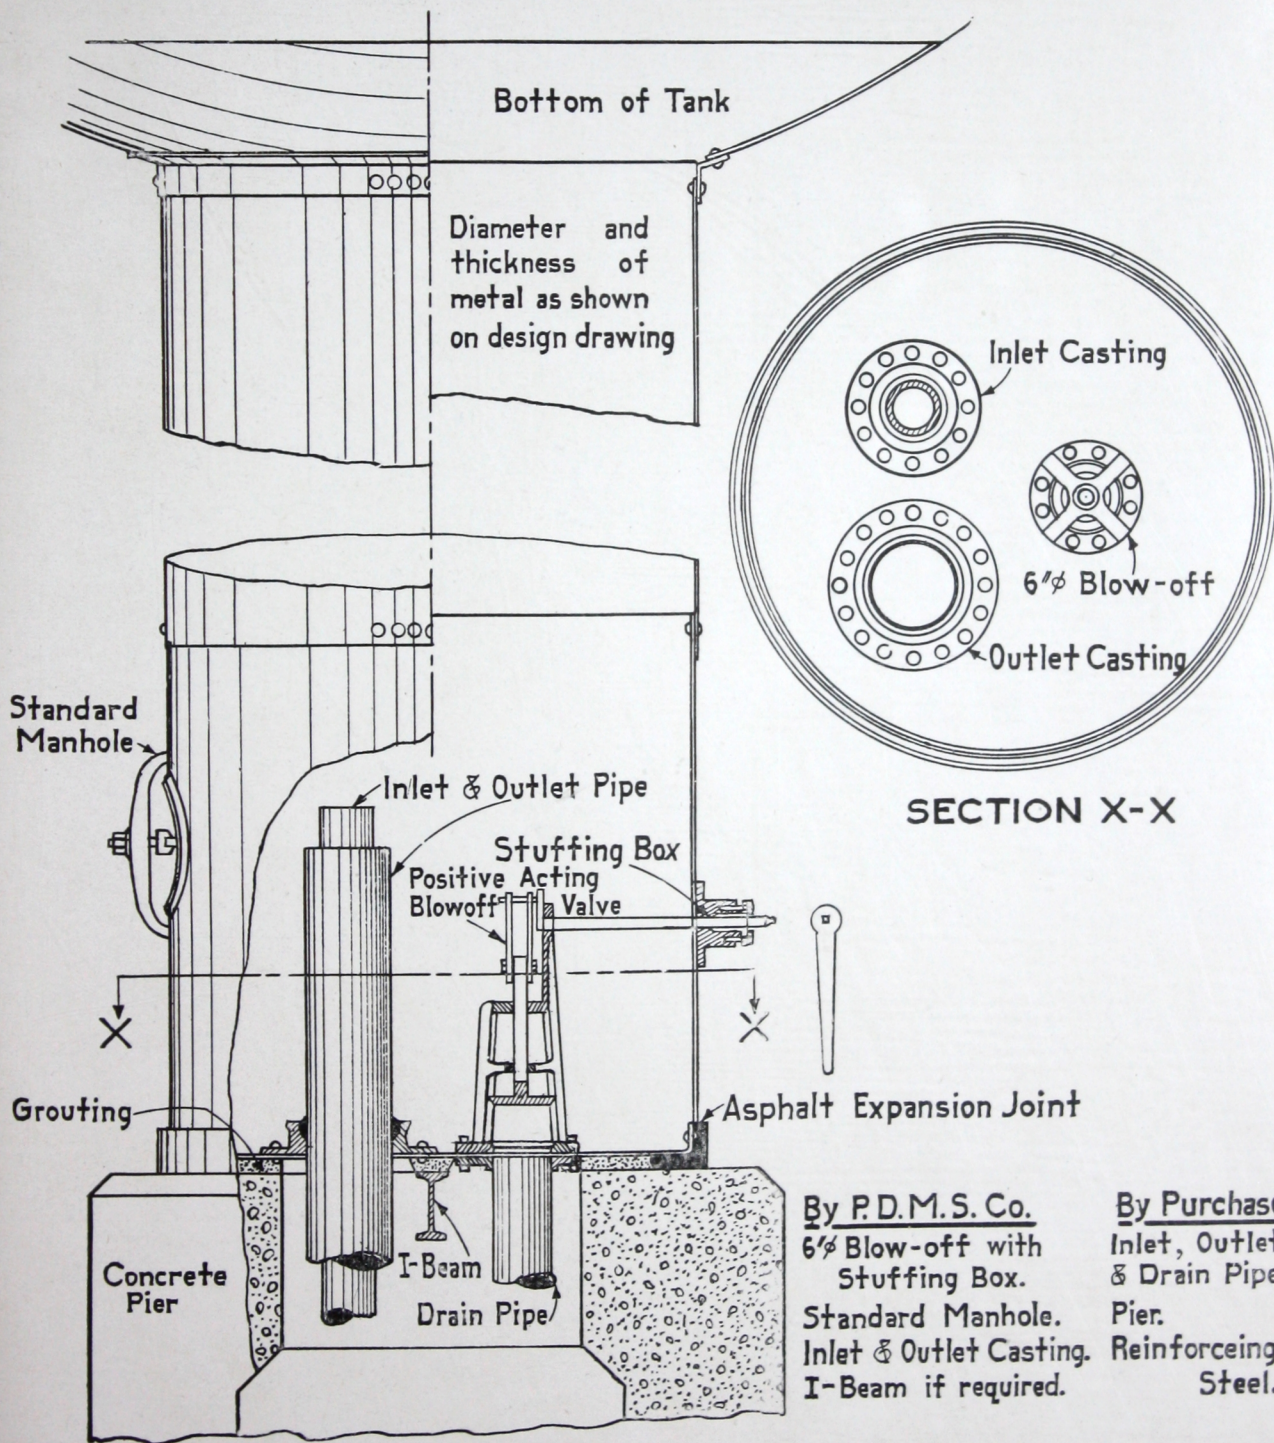 Bottom of Tank
Diameter and
thickness of
metal as shown
on design drawing
Inlet Casting
6"⌀ Blow-off
Outlet Casting
SECTION X-X
Standard
Manhole
Inlet & Outlet Pipe
Stuffing Box
Positive Acting
Blowoff Valve
X X
Grouting
Asphalt Expansion Joint
I-Beam
Concrete
Pier
Drain Pipe
By P.D.M.S. Co.
6"⌀ Blow-off with
Stuffing Box.
Standard Manhole.
Inlet & Outlet Casting.
I-Beam if required.
By Purchas
Inlet, Outlet
& Drain Pipe
Pier.
Reinforceing
Steel.